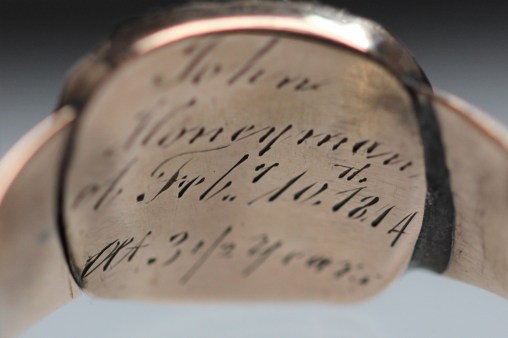 John
Honeyman,
ob. Feb.ʸ 10.ᵗʰ 1814
Æt. 3 1/2 Years